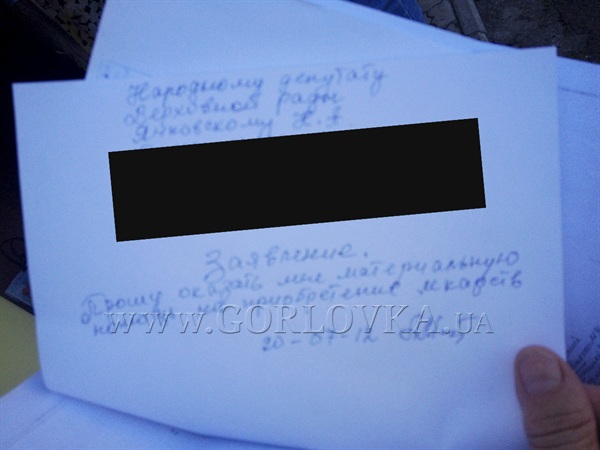 Народному депутату
Верховной рады
Янковскому Н.А.
Заявление.
Прошу оказать мне материальную
помощь на приобретение лекарств
www.GORLOVKA.ua
20-07-12